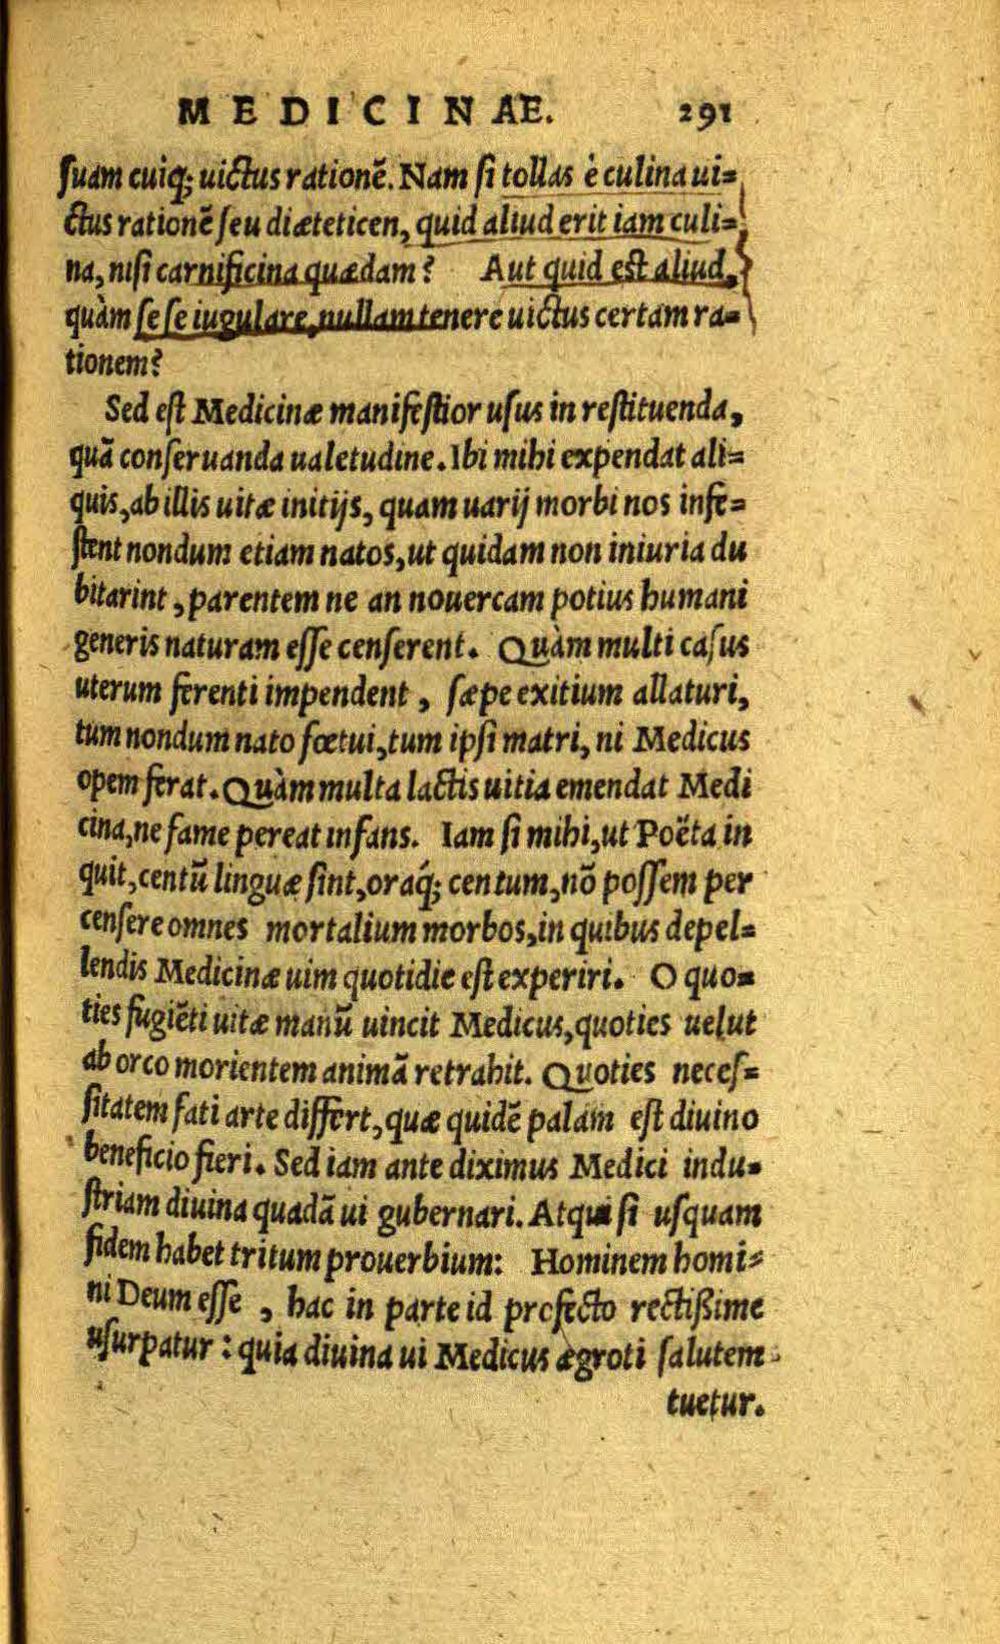 MEDICINAE. 291
ſuam cuiq́; uictus rationē. Nam ſi tollas è culina ui=
ctus rationē ſeu diæteticen, quid aliud erit iam culi=
na, niſi carnificina quædam? Aut quid est aliud,
quàm ſe ſe iugulare, nullam tenere uictus certam ra=
tionem?
Sed eſt Medicinæ manifeſtior uſus in reſtituenda,
quā conſeruanda ualetudine. Ibi mihi expendat ali=
quis, ab illis uitæ initijs, quam uarij morbi nos infe=
ſtent nondum etiam natos, ut quidam non iniuria du
bitarint, parentem ne an nouercam potius humani
generis naturam eſſe cenſerent. Quàm multi caſus
uterum ferenti impendent, ſæpe exitium allaturi,
tum nondum nato fœtui, tum ipſi matri, ni Medicus
opem ferat. Quàm multa lactis uitia emendat Medi
cina, ne fame pereat infans. Iam ſi mihi, ut Poëta in
quit, centū linguæ ſint, oraq́; centum, nō poſſem per
cenſere omnes mortalium morbos, in quibus depel=
lendis Medicinæ uim quotidie eſt experiri. O quo=
ties fugiēti uitæ manū uincit Medicus, quoties uelut
ab orco morientem animā retrahit. Quoties neceſ=
ſitatem fati arte differt, quæ quidē palam eſt diuino
beneficio fieri. Sed iam ante diximus Medici indu=
ſtriam diuina quadā ui gubernari. Atqui ſi uſquam
fidem habet tritum prouerbium: Hominem homi=
ni Deum eſſe, hac in parte id profecto rectißime
uſurpatur: quia diuina ui Medicus ægroti ſalutem
tuetur.